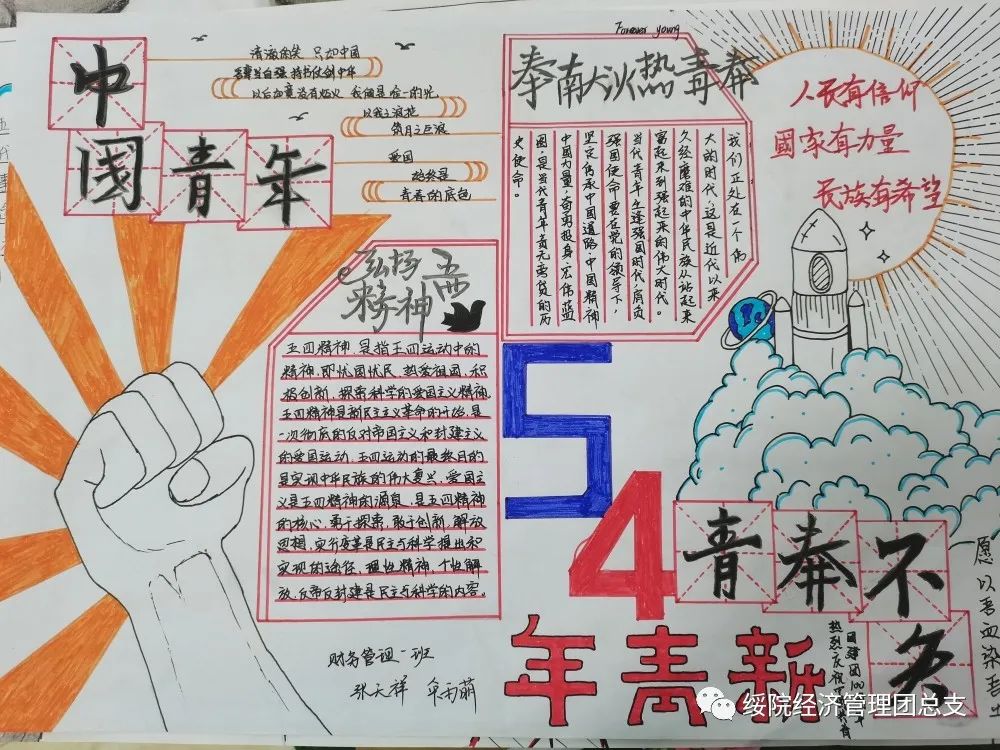 Forever young
中
国青年
清澈的爱 只如中国
吾辈当自强 持书仗剑中华
以后
我们便是唯一的光
筑月之巨浪
爱国
始终是
青春的底色
奉南大火热青春
我们正处在一个伟
大的时代，这是近代以来
久经磨难的中华民族从站起来
富起来到强起来的伟大时代。
当代青年，生逢强国时代，肩负
强国使命，要在党的领导下，
坚定传承中国道路，中国精神
中国力量，奋勇投身宏伟蓝
图，是当代青年责无旁贷的历
史使命。
人民有信仰
國家有力量
民族有希望
弘扬五四
精神
五四精神，是指五四运动中的
精神，即忧国忧民，热爱祖国，积
极创新，探索科学的爱国主义精神
五四精神是新民主主义革命的开始，是
一次彻底的反对帝国主义和封建主义
的爱国运动，五四运动的最终目的
是实现中华民族的伟大复兴，爱国主
义是五四精神的源泉，是五四精神
的核心，勇于探索，敢于创新，解放
思想，实行变革是民主与科学提出和
实现的途径，理性精神，个性解
放，反帝反封建是民主与科学的内容。
54
年青新
青春不
负
愿以吾血染吾土
热烈庆祝
国建团100周年
财务管理一班
张天祥
绥院经济管理团总支